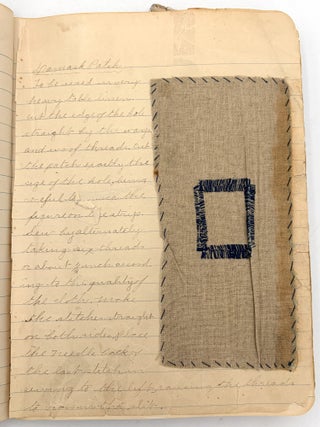 Damask Patch
To be used in very
heavy table linen.
Cut the edge of the hole
straight by the warp
and woof threads. Cut
the patch exactly the
size of the hole, being
careful to the
figures or
Sew by alternately
taking six threads
or about inch accord
ing to the quality of
the cloth. Make
the stitches straight
on both sides, place
the needle back of
the last stitch in
to the left, the threads
to